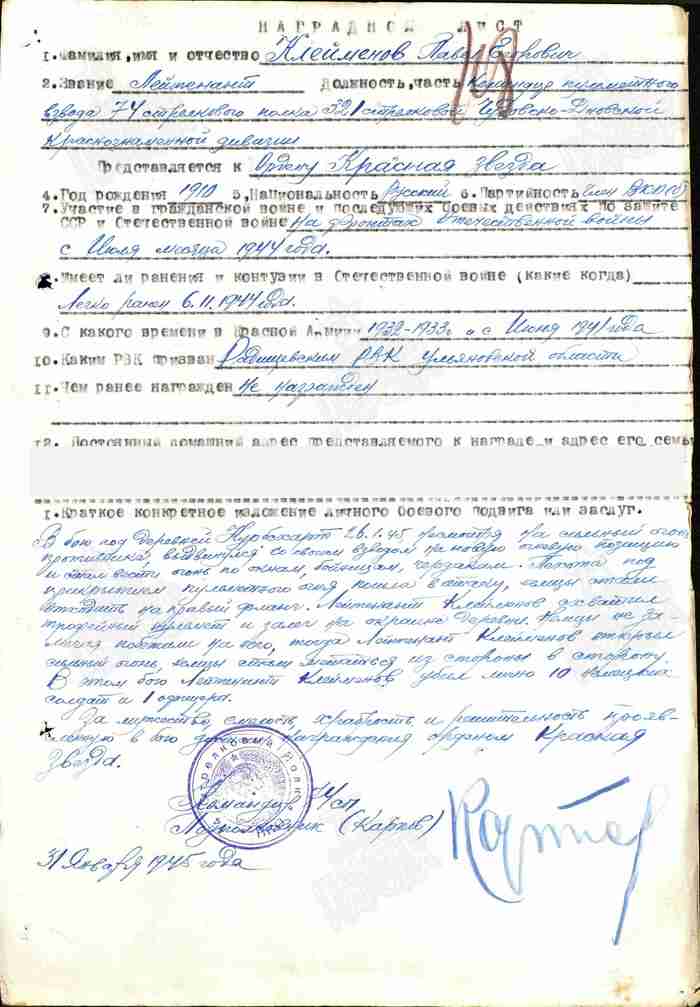 НАГРАДНОЙ ЛИСТ
1.Фамилия,имя и отчество Клейменов Павел Егорович
2.Звание Лейтенант Должность,часть Командир пулеметного
взвода 74 стрелкового полка 321 стрелковой Чудовско-Дновской
Краснознаменной дивизии
Представляется к Ордену Красная Звезда
4.Год рождения 1910 5.Национальность Русский 6.Партийность член ВКП(б)
7.Участие в гражданской войне и последующих боевых действиях по защите
СССР и Отечественной войне На фронтах Отечественной войны
с Июля месяца 1944 года.
8.Имеет ли ранения и контузии в Отечественной войне (какие когда)
Легко ранен 6.11.1944 года.
9.С какого времени в Красной Армии 1932-1933г и с Июня 1941 года
10.Каким РВК призван Радищевским РВК Ульяновской области
11.Чем ранее награжден Не награжден
12. Постоянный домашний адрес представляемого к награде и адрес его семьи
1.Краткое конкретное изложение личного боевого подвига или заслуг.
В бою под деревней 26.1.45 на сильный огонь
противника, выдвинулся со своим взводом на новую огневую позицию
и стал вести огонь по окнам, бойницам, чердакам. Пехота под
прикрытием пулеметного огня пошла в атаку, немцы стали
отходить на правый фланг. Лейтенант Клейменов схватил
трофейный пулемет и залег на окраине деревни. Немцы не за-
мечая побежали на него, тогда Лейтенант Клейменов открыл
сильный огонь, немцы стали метаться из стороны в сторону.
В этом бою Лейтенант Клейменов убил лично 10 немецких
солдат и 1 офицера.
За мужество, смелость, храбрость и решительность прояв-
ленную в бою награждения орденом Красная
Звезда.
Командир 74 сп
Подполковник (Карпов)
31 Января 1945 года